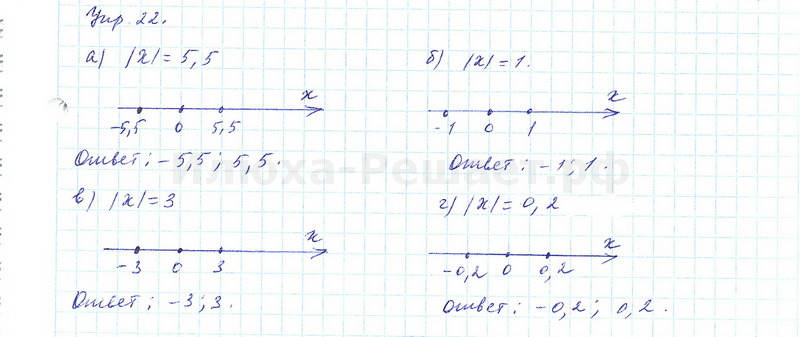 Упр. 22.
а) |x| = 5,5
x
-5,5 0 5,5
Ответ: -5,5; 5,5.
б) |x| = 1.
x
-1 0 1
Ответ: -1; 1.
в) |x| = 3
x
-3 0 3
Ответ: -3; 3.
г) |x| = 0,2
x
-0,2 0 0,2
Ответ: -0,2; 0,2.
Илюха-Решает.рф